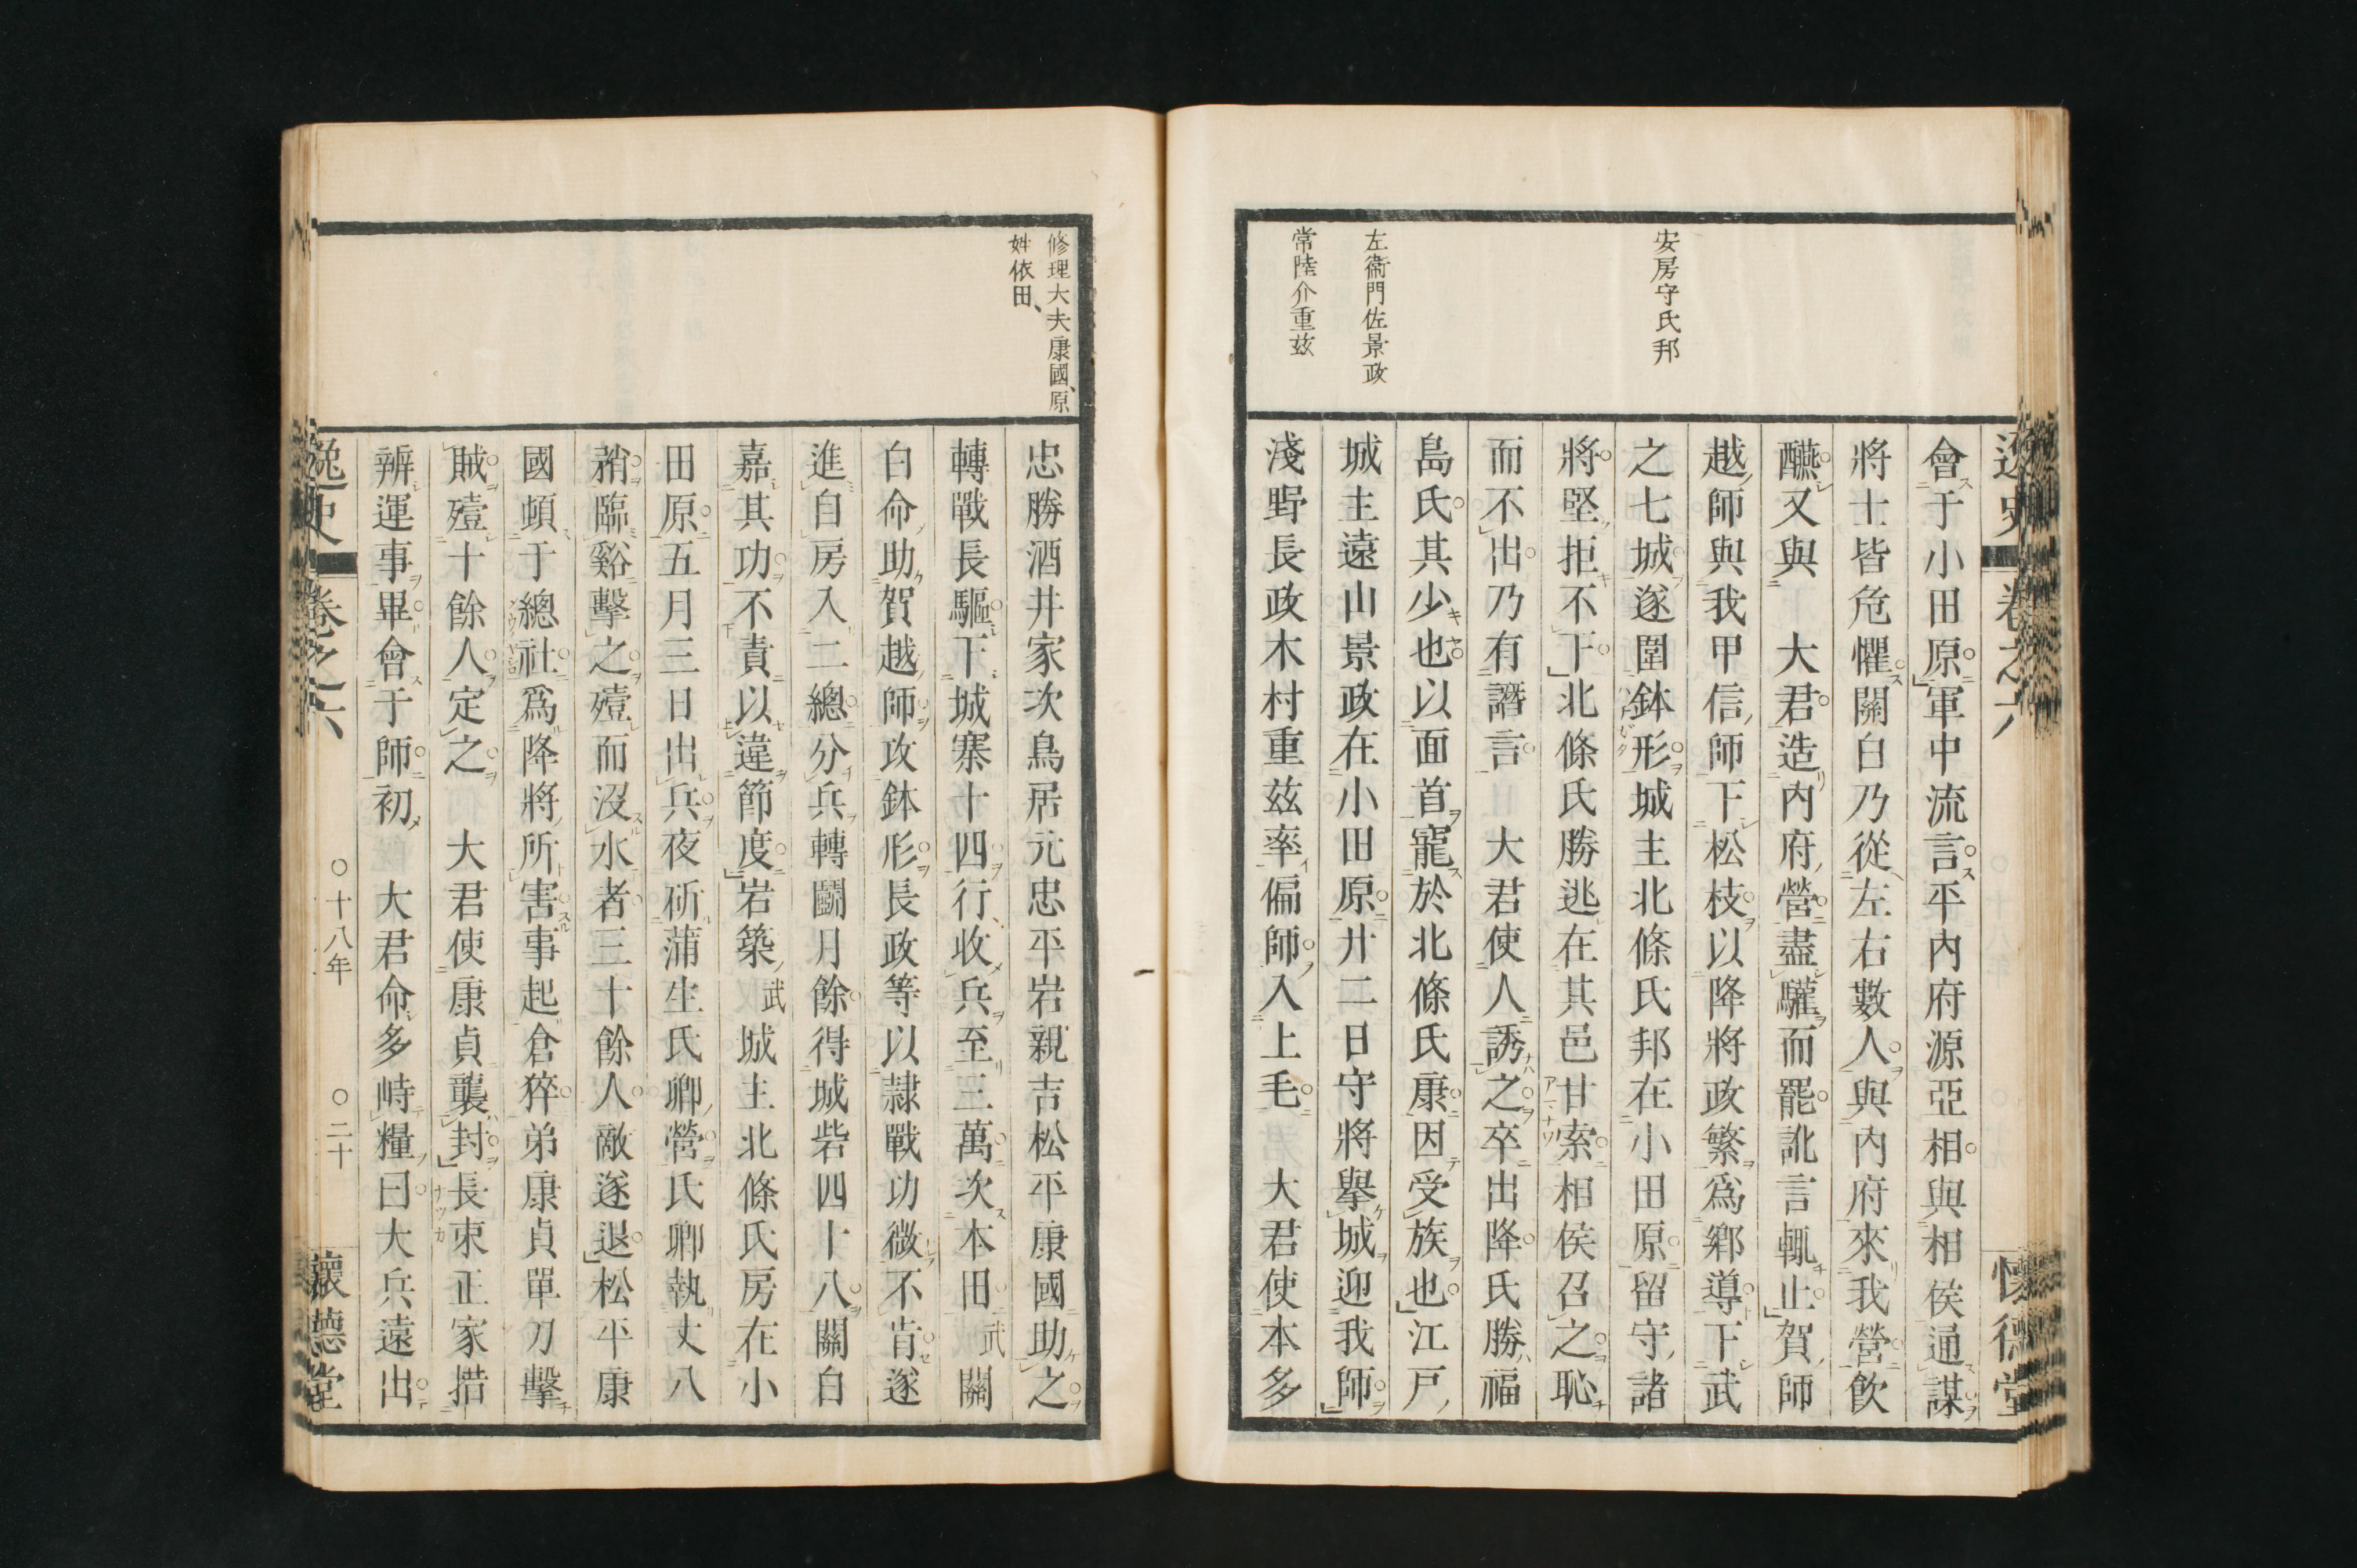 逸史
卷之六
懷德堂
安房守氏邦
左衞門佐景政
常陸介重玆
會于小田原軍中流言平內府源亞相與相侯通謀
將士皆危懼關白乃從左右數人與內府來我營飮
醼又與　大君造內府營盡驩而罷訛言輒止賀師
越師與我甲信師下松枝以降將政繁爲鄕導下武
之七城遂圍鉢形城主北條氏邦在小田原留守諸
將堅拒不下北條氏勝逃在其邑甘索相侯召之恥
而不出乃有譖言　大君使人誘之卒出降氏勝福
島氏其少也以面首寵於北條氏康因受族也江戸
城主遠山景政在小田原廾二日守將擧城迎我師
淺野長政木村重玆率偏師入上毛　大君使本多
修理大夫康國、原
姓依田、
忠勝酒井家次鳥居元忠平岩親吉松平康國助之
轉戰長驅下城寨十四行收兵至三萬次本田武關
白命助賀越師攻鉢形長政等以隷戰功微不肯遂
進自房入二總分兵轉鬭月餘得城砦四十八關白
嘉其功不責以違節度岩築武城主北條氏房在小
田原五月三日出兵夜斫蒲生氏鄕營氏鄕執丈八
矟臨谿擊之殪而沒水者三十餘人敵遂退松平康
國頓于總社爲降將所害事起倉猝弟康貞單刀擊
賊殪十餘人定之　大君使康貞襲封長束正家措
辨運事畢會于師初　大君命多峙糧曰大兵遠出
逸史
卷之六
○十八年
○二十
懷德堂